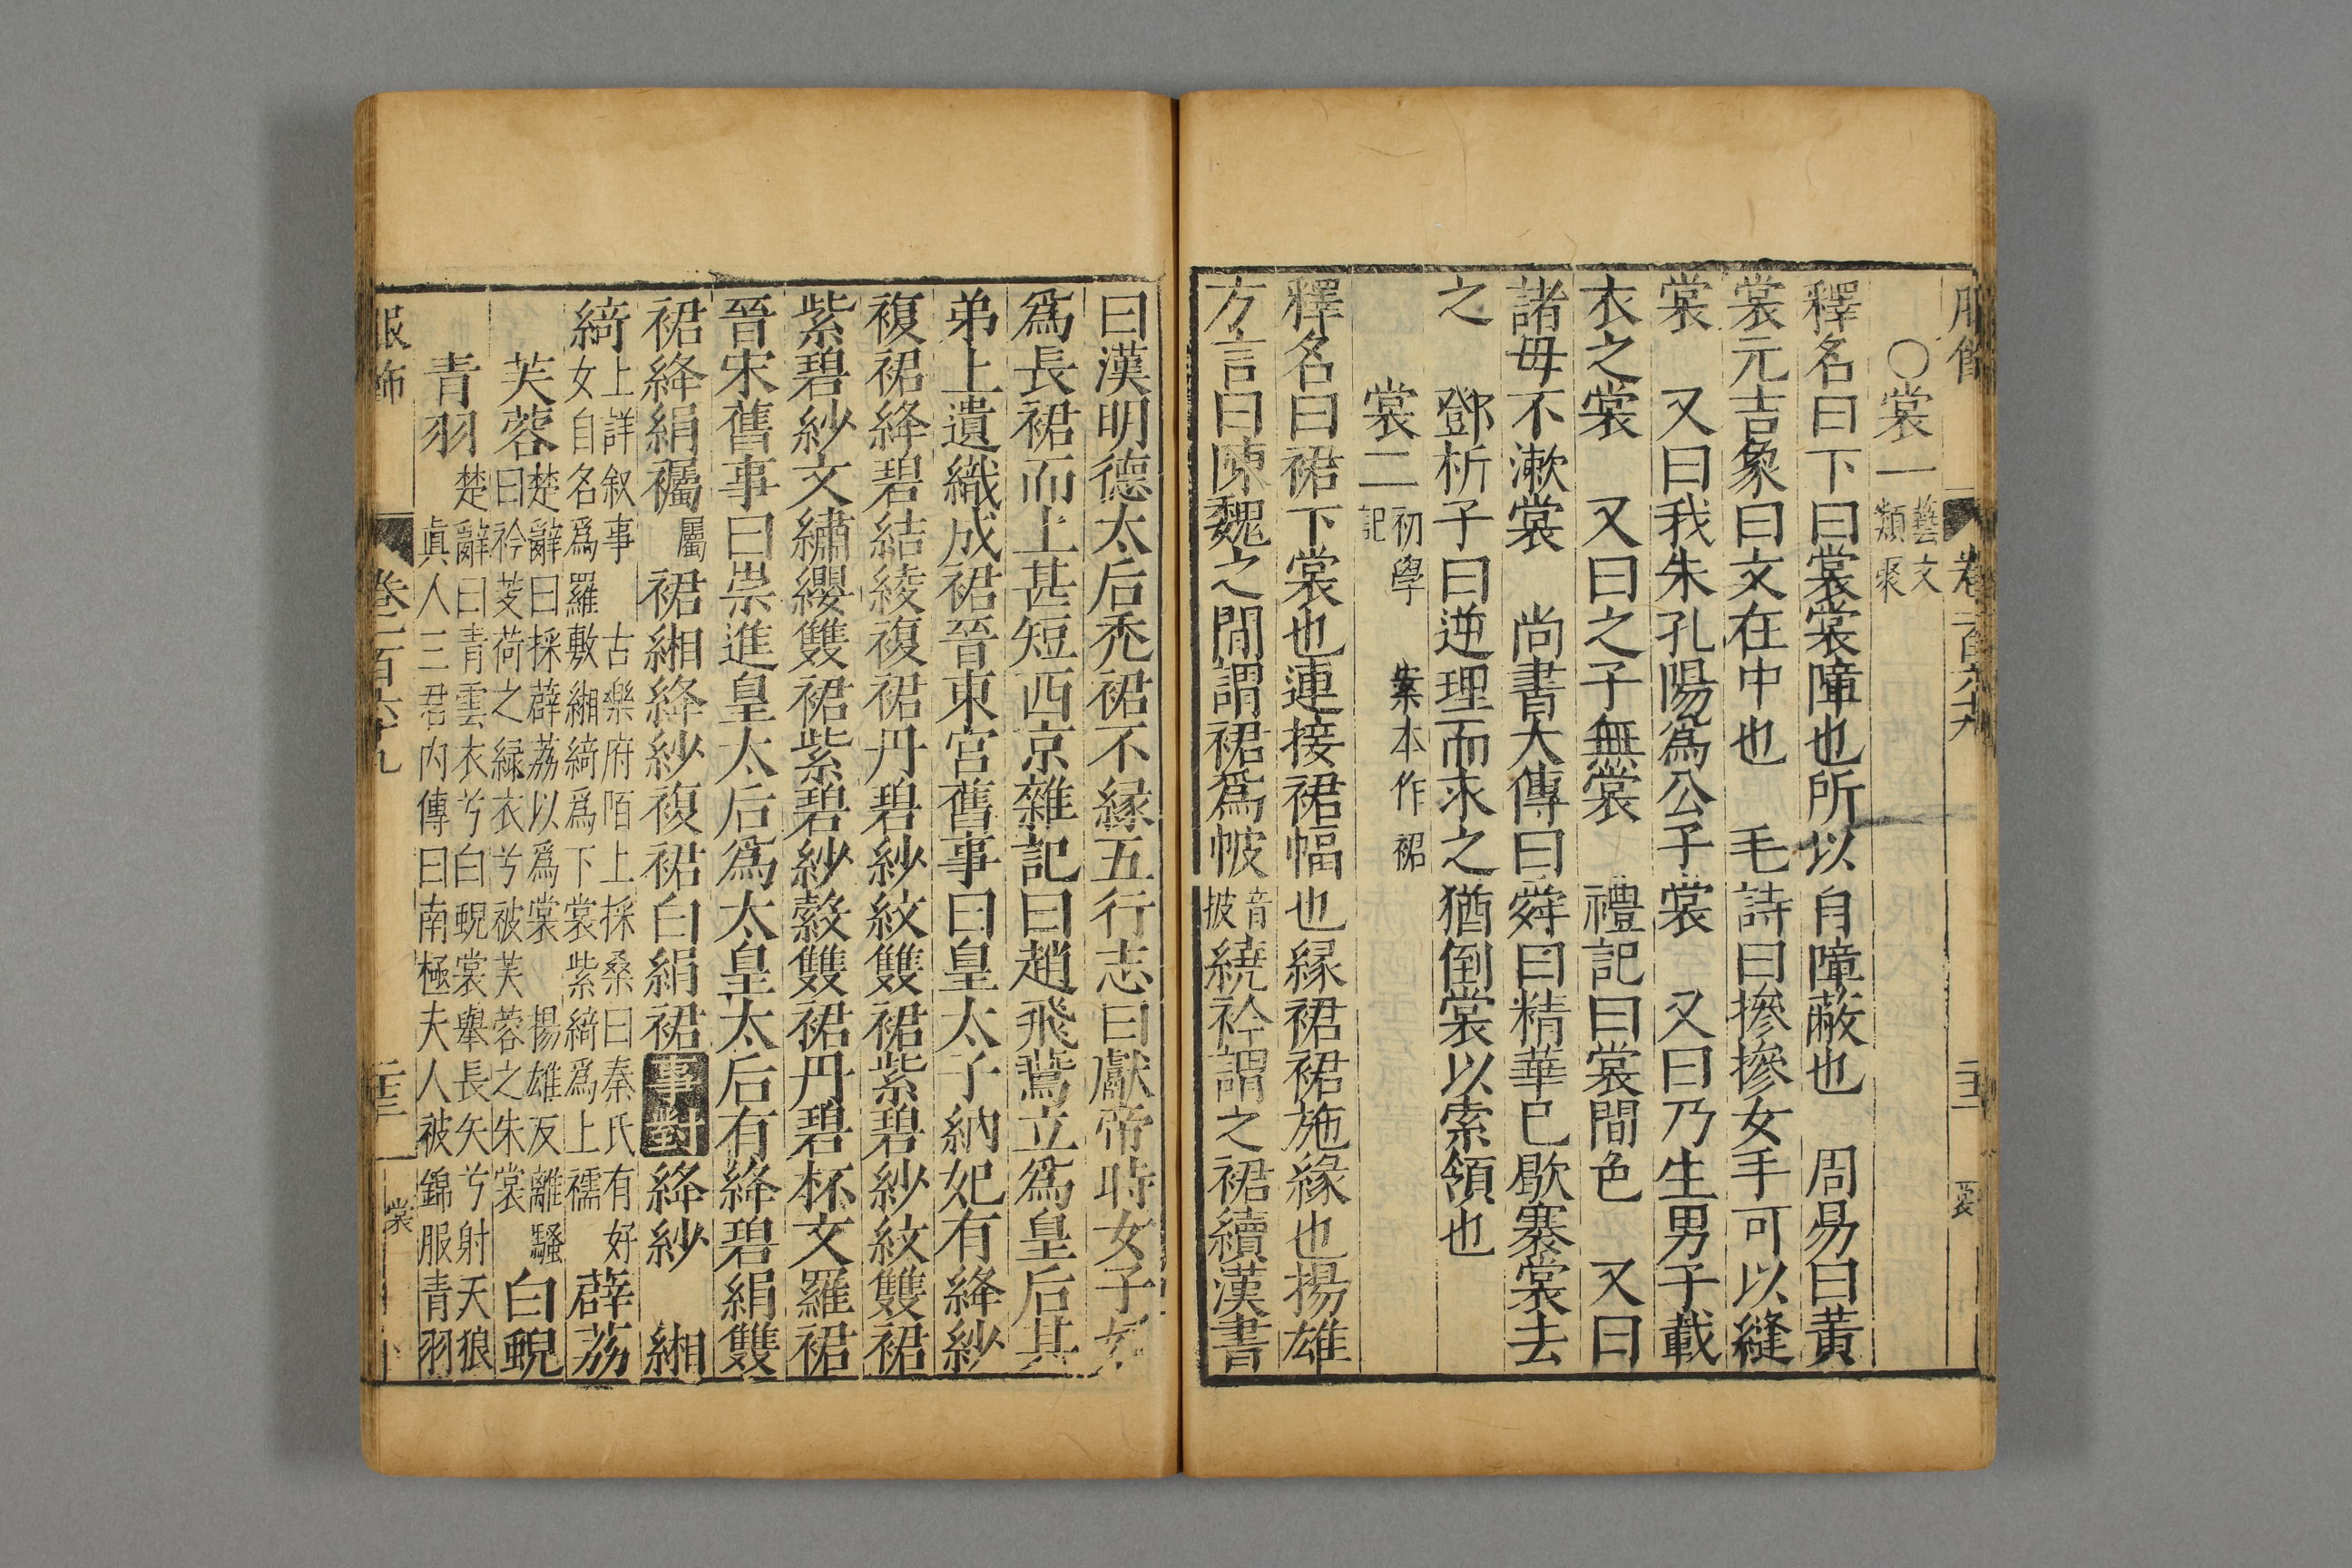 服飾 卷一百六十九 二十二 裳
〇裳一 藝文類聚
釋名曰下曰裳裳障也所以自障蔽也 周易曰黃
裳元吉象曰文在中也 毛詩曰摻摻女手可以縫
裳 又曰我朱孔陽爲公子裳 又曰乃生男子載
衣之裳 又曰之子無裳 禮記曰裳間色 又曰
諸母不漱裳 尚書大傳曰舜曰精華已歇褰裳去
之 鄧析子曰逆理而求之猶倒裳以索領也
裳二 初學記 案本作裙
釋名曰裙下裳也連接裙幅也緣裙裙施緣也揚雄
方言曰陳魏之間謂裙爲帔 音披 繞衿謂之裙續漢書
曰漢明德太后禿裙不緣五行志曰獻帝時女子好
爲長裙而上甚短西京雜記曰趙飛鷰立爲皇后其
弟上遺織成裙晉東宮舊事曰皇太子納妃有絳紗
複裙絳碧結綾複裙丹碧紗紋雙裙紫碧紗紋雙裙
紫碧紗文繡纓雙裙紫碧紗縠雙裙丹碧杯文羅裙
晉宋舊事曰崇進皇太后爲太皇太后有絳碧絹雙
裙絳絹襡 屬 裙緗絳紗複裙白絹裙 事對 絳紗 緗
綺 上詳叙事 古樂府陌上採桑曰秦氏有好女自名爲羅敷緗綺爲下裳紫綺爲上襦 薜荔
芙蓉 楚辭曰採薜荔以爲裳 揚雄反離騷曰衿芰荷之綠衣兮被芙蓉之朱裳 白蜺
青羽 楚辭曰青雲衣兮白蜺裳舉長矢兮射天狼 眞人三君內傳曰南極夫人被錦服青羽
服飾 卷一百六十九 二十三 裳